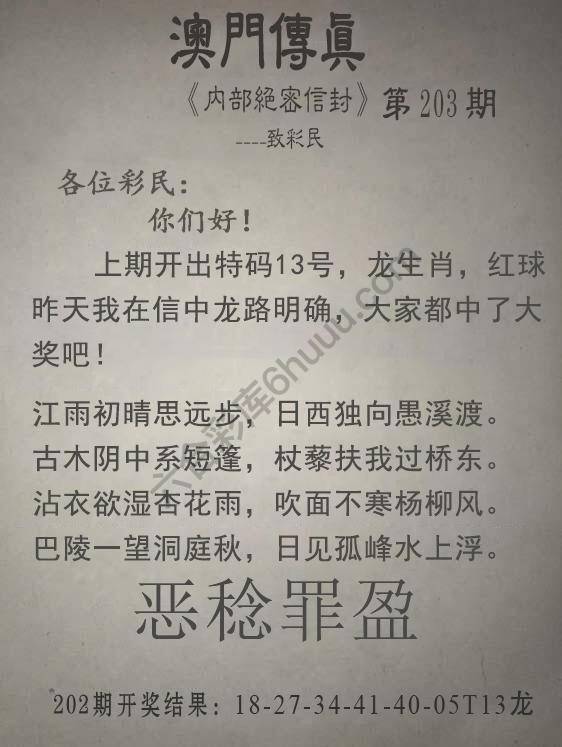 澳門傳眞
《内部絕密信封》第203期
----致彩民
各位彩民：
你们好！
上期开出特码13号，龙生肖，红球
昨天我在信中龙路明确，大家都中了大
奖吧！
江雨初晴思远步，日西独向愚溪渡。
古木阴中系短篷，杖藜扶我过桥东。
沾衣欲湿杏花雨，吹面不寒杨柳风。
巴陵一望洞庭秋，日见孤峰水上浮。
恶稔罪盈
202期开奖结果：18-27-34-41-40-05T13龙
六合彩库6huuu.com